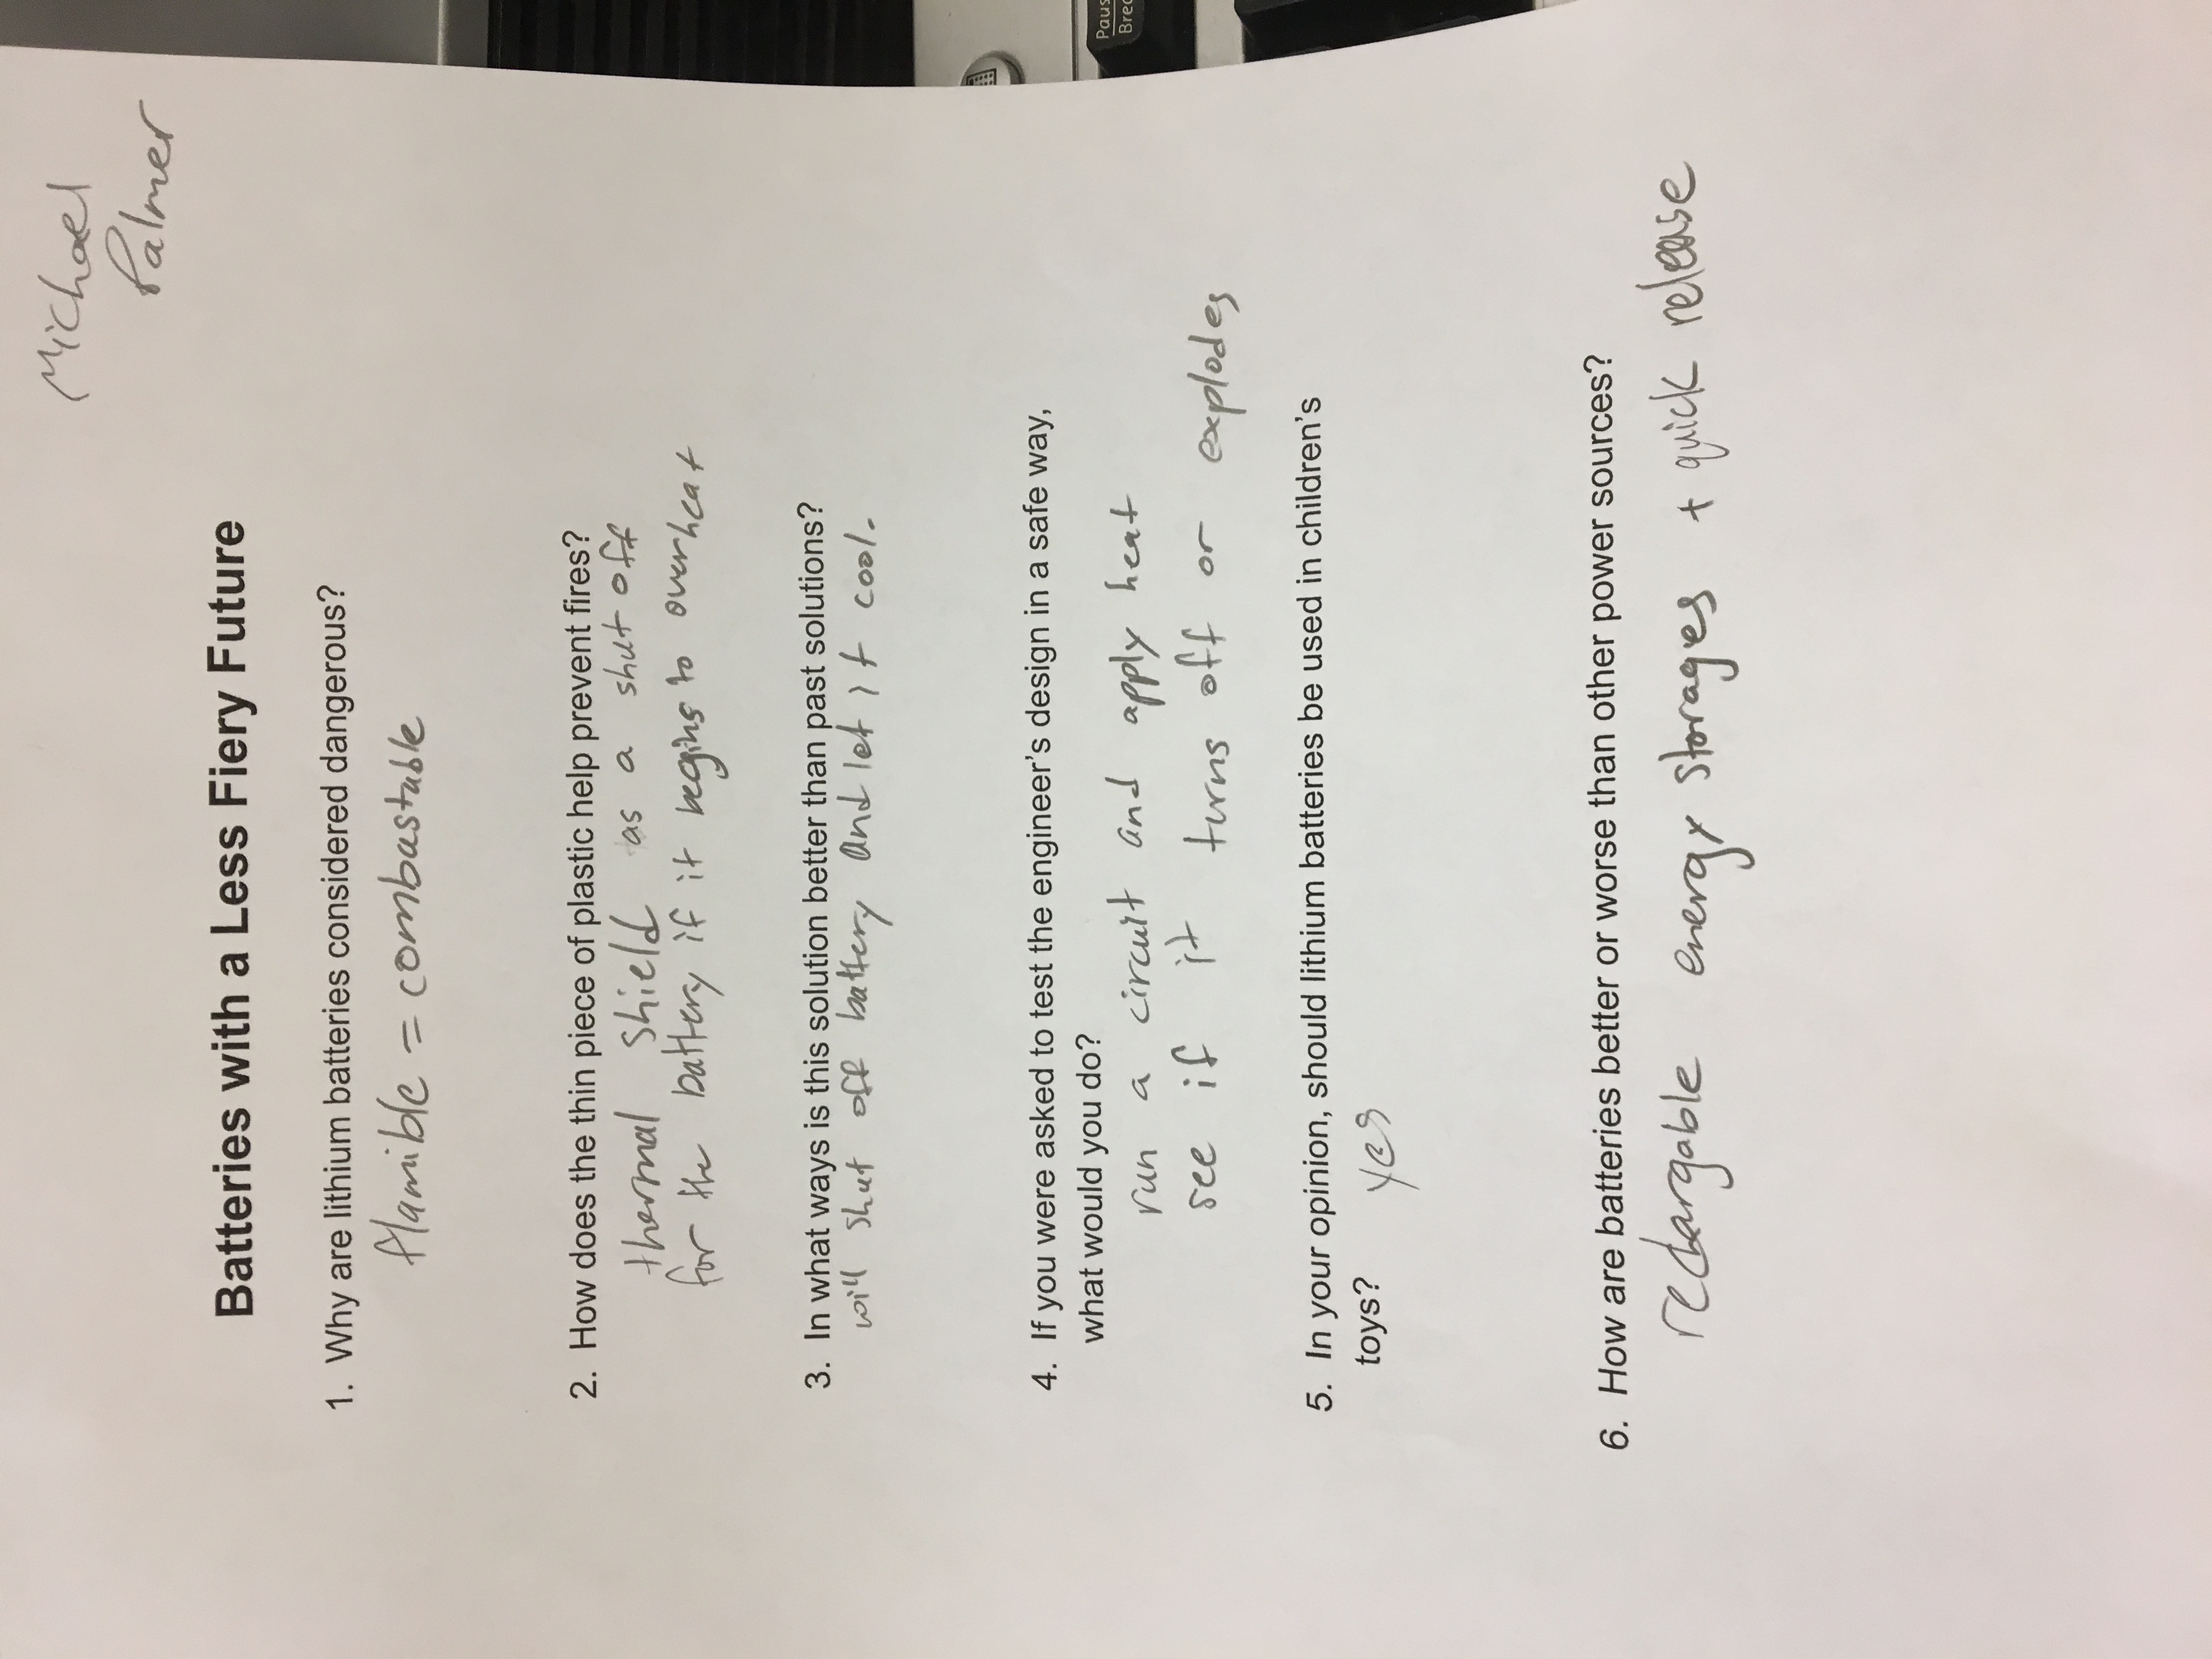 Paus
Brea
Michael
Palmer
Batteries with a Less Fiery Future
1. Why are lithium batteries considered dangerous?
flamible = combustable
2. How does the thin piece of plastic help prevent fires?
thermal shield as a shut off
for the battery if it begins to overheat
3. In what ways is this solution better than past solutions?
will shut off battery and let it cool.
4. If you were asked to test the engineer's design in a safe way,
what would you do?
run a circuit and apply heat
see if it turns off or explodes
5. In your opinion, should lithium batteries be used in children's
toys?
yes
6. How are batteries better or worse than other power sources?
rechargable energy storages + quick release